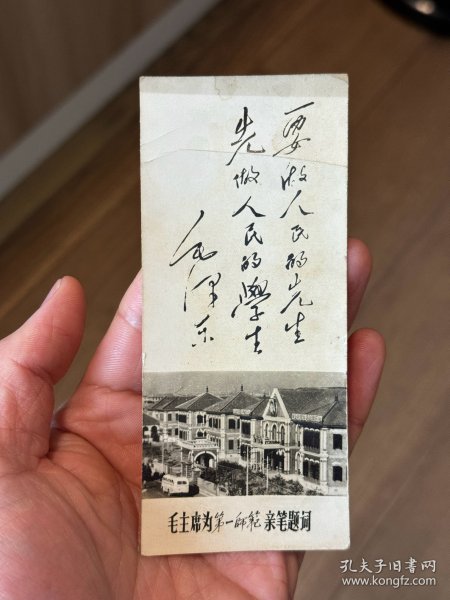 要做人民的先生
先做人民的學生
毛泽东
毛主席为第一师范亲笔题词
孔夫子旧书网
www.kongfz.com